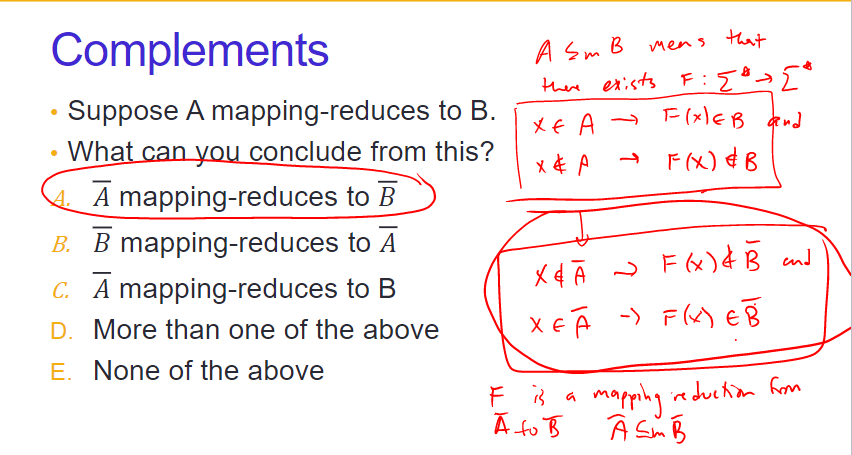 Complements
• Suppose A mapping-reduces to B.
• What can you conclude from this?
A. A̅ mapping-reduces to B̅
B. B̅ mapping-reduces to A̅
C. A̅ mapping-reduces to B
D. More than one of the above
E. None of the above
A ≤m B means that
there exists F: Σ* → Σ*
x ∈ A → F(x) ∈ B and
x ∉ A → F(x) ∉ B
x ∉ A̅ → F(x) ∉ B̅ and
x ∈ A̅ → F(x) ∈ B̅
F is a mapping reduction from
A̅ to B̅ A̅ ≤m B̅